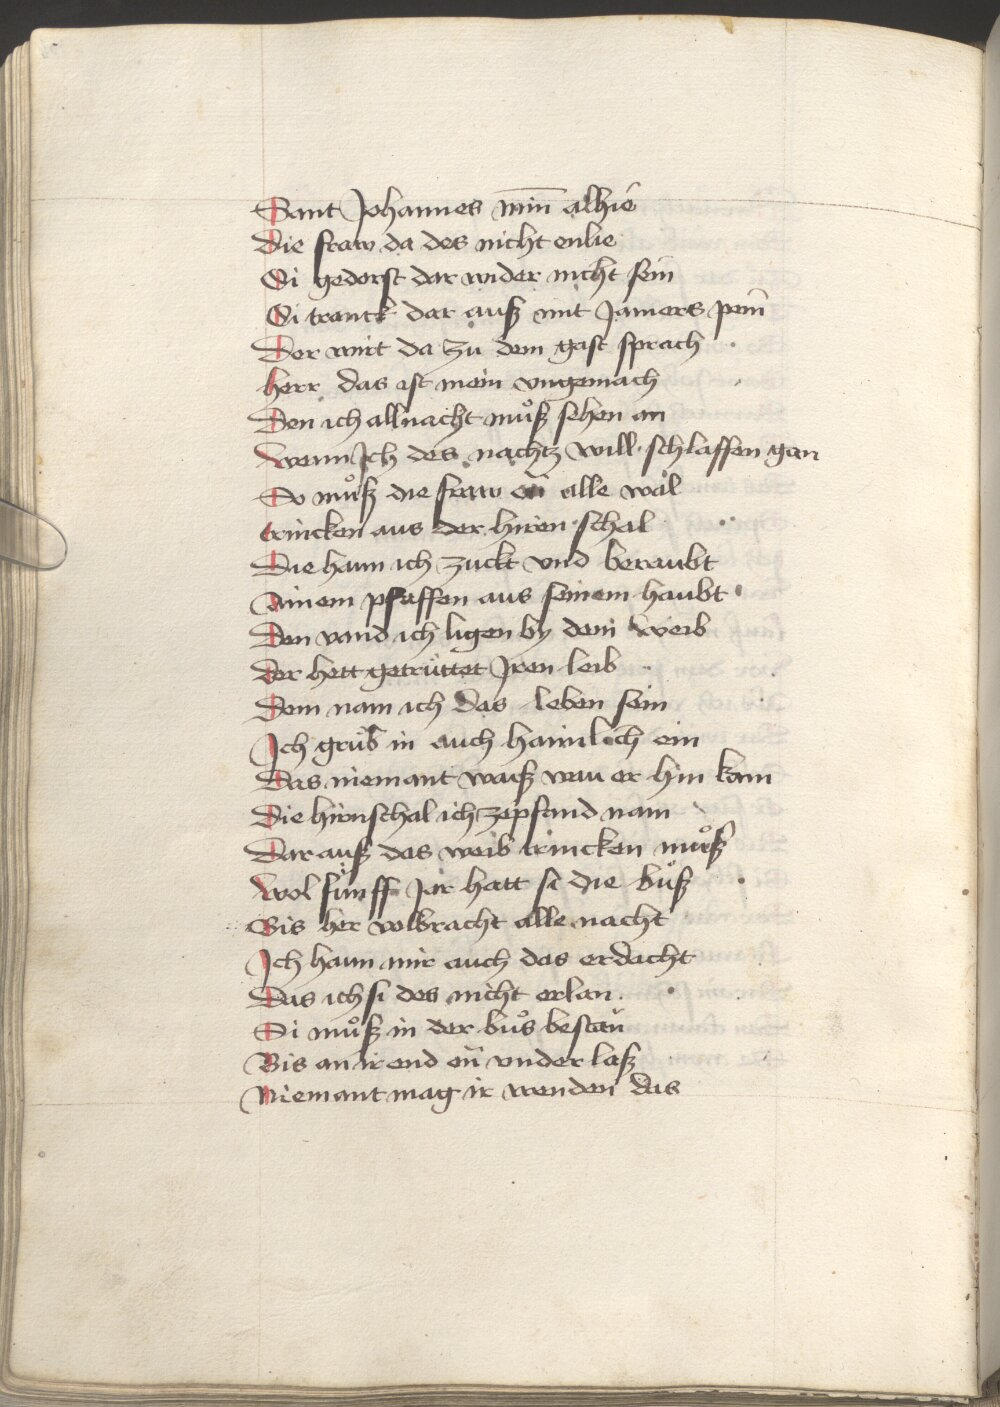 Sant Johannes min̄ alhie
die fraw da des nicht enlie
Si gedorst dar wider nicht sein
Si tranck dar auß mit Jamers pein
Der wirt da zu dem gast sprach
herr das ist mein vngemach
Den ich allnacht můß sehen an
wenn Ich des nachtz will schlaffen gan
So můß die fraw on alle wal
trincken aus der hiren schal
Die hann ich zuckt vnd beraubt
ainem pfaffen aus seinem haubt
Den vand ich ligen by dem weib
der hett getrüttet Iren leib
Dem nam ich das leben sein
Ich grůb in auch haimlich ein
Das niemant waiß wau er hin kam
Die hirnschal ich zepfand nam
Dar auß das weib trincken můß
wol fünff Jar hatt si die bůß
Bis her volbracht alle nacht
Ich hann mir auch das erdacht
Das ich si des nicht erlan
Si můß in der bůs bestan
Bis an ir end on vnder laß
Niemant mag ir wenden das